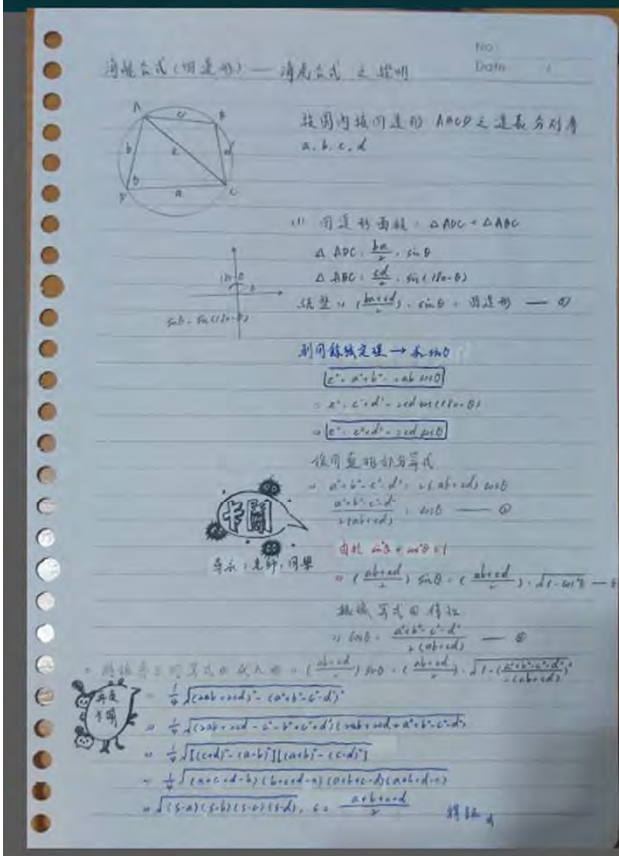 No.
Date
海龍公式(四邊形) — 海尾公式 之證明
A
B
b
e
d
θ
D
a
C
設圓內接四邊形 ABCD 之邊長分別為
a, b, c, d
(1) 四邊形面積 = △ADC + △ABC
△ ADC = ba/2 · sinθ
△ ABC = cd/2 · sin(180-θ)
(ba+cd/2) · sinθ = 四邊形 — ①
sinθ = sin(180-θ)
利用餘弦定理 → 求 sinθ
e² = a²+b²-2ab cosθ
e² = c²+d²-2cd cos(180-θ)
a²+b²-c²-d² = 2(ab+cd) cosθ
a²+b²-c²-d²/2(ab+cd) = cosθ — ②
卡關
老師,同學
由於 sin²θ + cos²θ = 1
⇒ (ab+cd/2) sinθ = (ab+cd/2) · √1-cos²θ
根據 等式②得知
⇒ cosθ = a²+b²-c²-d²/2(ab+cd)
(ab+cd/2) sinθ = (ab+cd/2) · √1-(a²+b²-c²-d²/2(ab+cd))²
再度
卡關
= 1/4 √(2ab+2cd)²-(a²+b²-c²-d²)²
⇒ 1/4 √[(c+d)²-(a-b)²][(a+b)²-(c-d)²]
= 1/4 √(a+c+d-b)(b+c+d-a)(a+b+c-d)(a+b+d-c)
⇒ √(s-a)(s-b)(s-c)(s-d), s = a+b+c+d/2
得証